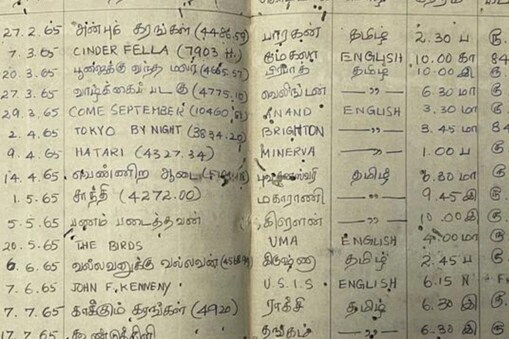 27.2.65 அன்புக் கரங்கள் (4486.59) பாரகன் தமிழ் 2.30 ப
7.3.65 CINDER FELLA (7903 H.) ENGLISH 10.00 கா 84
20.3.65 பூஜைக்கு வந்த மலர் (4665.57) தமிழ் 10.00 இ
27.3.65 வாழ்க்கைப் படகு (4775.10) வெலிங்டன் —"— 6.30 மா
29.3.65 COME SEPTEMBER (10460 ANAND ENGLISH 3.30 மா
2.4.65 TOKYO BY NIGHT (3834.20) BRIGHTON —"— 3.45 மா 84
9.4.65 HATARI (4327.34) MINERVA —"— 1.00 ப
14.4.65 வெண்ணிற ஆடை புவனேஸ்வரி தமிழ் 6.30 மா
1.5.65 சாந்தி (4272.00) மகாராணி —"— 9.45 இ
5.5.65 பணம் படைத்தவன் கிரௌன் —"— 10.00 இ
20.5.65 THE BIRDS UMA ENGLISH 4.00 மா
6.6.65 வல்லவனுக்கு வல்லவன் கிருஷ்ணா தமிழ் 2.45 ப
7.6.65 JOHN F. KENNENY U.S.I.S ENGLISH 6.15 N
7.7.65 காக்கும் கரங்கள் (4920) ராக்சி தமிழ் 6.30 இ
17.7.65 தங்கம் —"— 6.30 இ